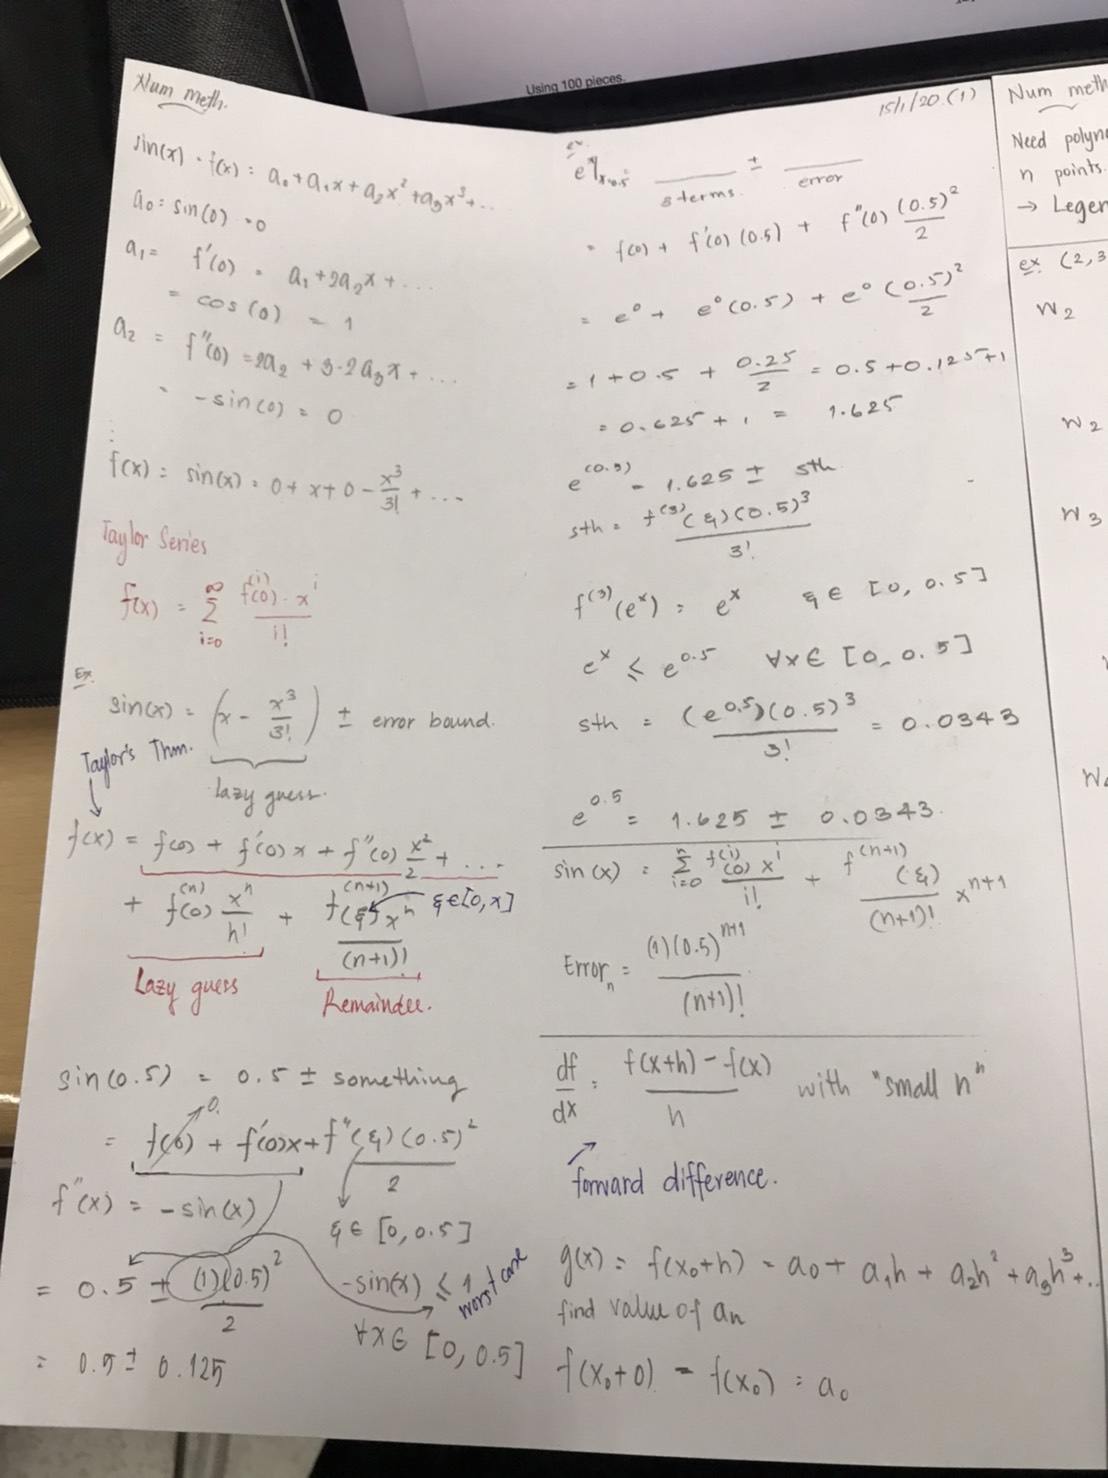 Using 100 pieces.
Num meth.
sin(x) = f(x) = a₀ + a₁x + a₂x² + a₃x³ + ...
a₀ = sin(0) = 0
a₁ = f'(0) = a₁ + 2a₂x + ...
= cos(0) = 1
a₂ = f''(0) = 2a₂ + 3·2a₃x + ...
= -sin(0) = 0
⋮
f(x) = sin(x) = 0 + x + 0 - x³/3! + ...
Taylor Series
f(x) = Σ_{i=0}^{∞} f⁽ⁱ⁾(0) · xⁱ / i!
Ex.
sin(x) = (x - x³/3!) ± error bound.
lazy guess.
Taylor's Thm.
f(x) = f(0) + f'(0)x + f''(0) x²/2 + ...
+ f⁽ⁿ⁾(0) xⁿ/n! + f⁽ⁿ⁺¹⁾(ξ) xⁿ/(n+1)! ξ∈[0,x]
Lazy guess Remainder.
sin(0.5) = 0.5 ± something
0.
= f(0) + f'(0)x + f''(ξ)(0.5)²/2
f''(x) = -sin(x)
ξ ∈ [0, 0.5]
= 0.5 ± (1)(0.5)²/2
-sin(x) ≤ 1 worst case
∀x∈ [0, 0.5]
= 0.5 ± 0.125
15/1/20 (1)
ex.
eˣ|ₓ₌₀.₅ = ____ ± ____
3 terms. error
= f(0) + f'(0)(0.5) + f''(0) (0.5)²/2
= e⁰ + e⁰(0.5) + e⁰ (0.5)²/2
= 1 + 0.5 + 0.25/2 = 0.5 + 0.125 + 1
= 0.625 + 1 = 1.625
e^(0.5) = 1.625 ± sth
sth = f⁽³⁾(ξ)(0.5)³/3!
f⁽³⁾(eˣ) = eˣ ξ ∈ [0, 0.5]
eˣ ≤ e^0.5 ∀x∈ [0, 0.5]
sth = (e^0.5)(0.5)³/3! = 0.0343
e^0.5 = 1.625 ± 0.0343.
sin(x) = Σ_{i=0}^{n} f⁽ⁱ⁾(0) xⁱ/i! + f⁽ⁿ⁺¹⁾(ξ)/(n+1)! xⁿ⁺¹
Errorₙ = (1)(0.5)ⁿ⁺¹/(n+1)!
df/dx = (f(x+h) - f(x))/h with "small h"
forward difference.
g(x) = f(x₀+h) = a₀ + a₁h + a₂h² + a₃h³ + ..
find value of aₙ
f(x₀+0) = f(x₀) = a₀
Num meth
Need polyn
n points.
→ Legen
ex. (2,3
W₂
W₂
W₃